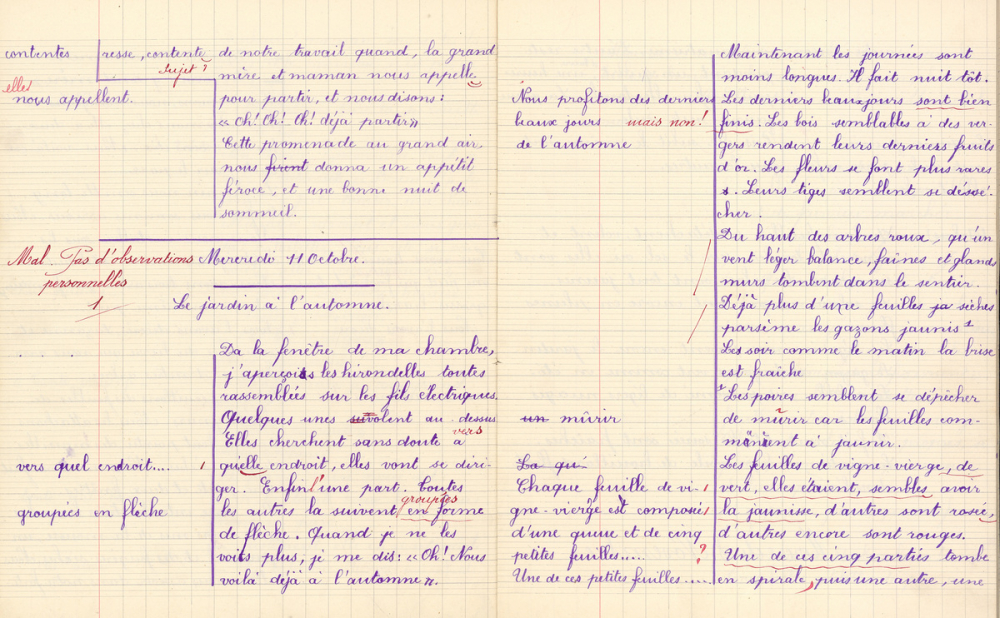 contentes
resse, contente de notre travail quand, la grand
Sujet ?
mère et maman nous appelle
elles
nous appellent.
pour partir, et nous disons :
« Oh! Oh! Oh! déjà partir »
Cette promenade au grand air,
nous firint donna un appétit
féroce, et une bonne nuit de
sommeil.
Mal. Pas d'observations
personnelles
1
Mercredi 11 Octobre.
Le jardin à l'automne.
Da la fenêtre de ma chambre,
j'aperçois les hirondelles toutes
rassemblées sur les fils électriques.
Quelques unes suivolent au dessus
Elles cherchent sans doute à
vers
vers quel endroit....
quelle endroit, elles vont se diri-
ger. Enfin l'une part. Toutes
groupées
groupées en flèche
les autres la suivent, en forme
de flèche. Quand je ne les
vois plus, je me dis : « Oh! Nous
voilà déjà à l'automne ».
Maintenant les journées sont
moins longues. Il fait nuit tôt.
Nous profitons des derniers
beaux jours mais non!
de l'automne
Les derniers beaux jours sont bien
finis. Les bois semblables à des ver-
gers rendent leurs derniers fruits
d'or. Les fleurs se font plus rares
s. Leurs tiges semblent se déssé-
cher.
Du haut des arbres roux, qu'un
vent léger balance, faînes et glands
murs tombint dans le sentier.
Déjà plus d'une feuilles ja sèches
parsème les gazons jaunis
Les soir comme le matin la brise
est fraîche
Les poires semblent se dépêcher
un mûrir
de mûrir car les feuilles com-
mencent à jaunir.
La qui
Les feuilles de vigne-vierge, de
Chaque feuille de vi-
gne-vierge est composée
d'une queue et de cinq
petites feuilles.....
?
Une de ces petites feuilles.....
vert, elles étaient, sembles avoir
la jaunisse, d'autres sont rosie,
d'autres encore sont rouges.
Une de ces cinq parties tombe
en spirale, puis une autre, une